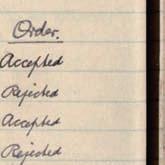 Order.
Accepted
Rejected
Accepted
Rejected